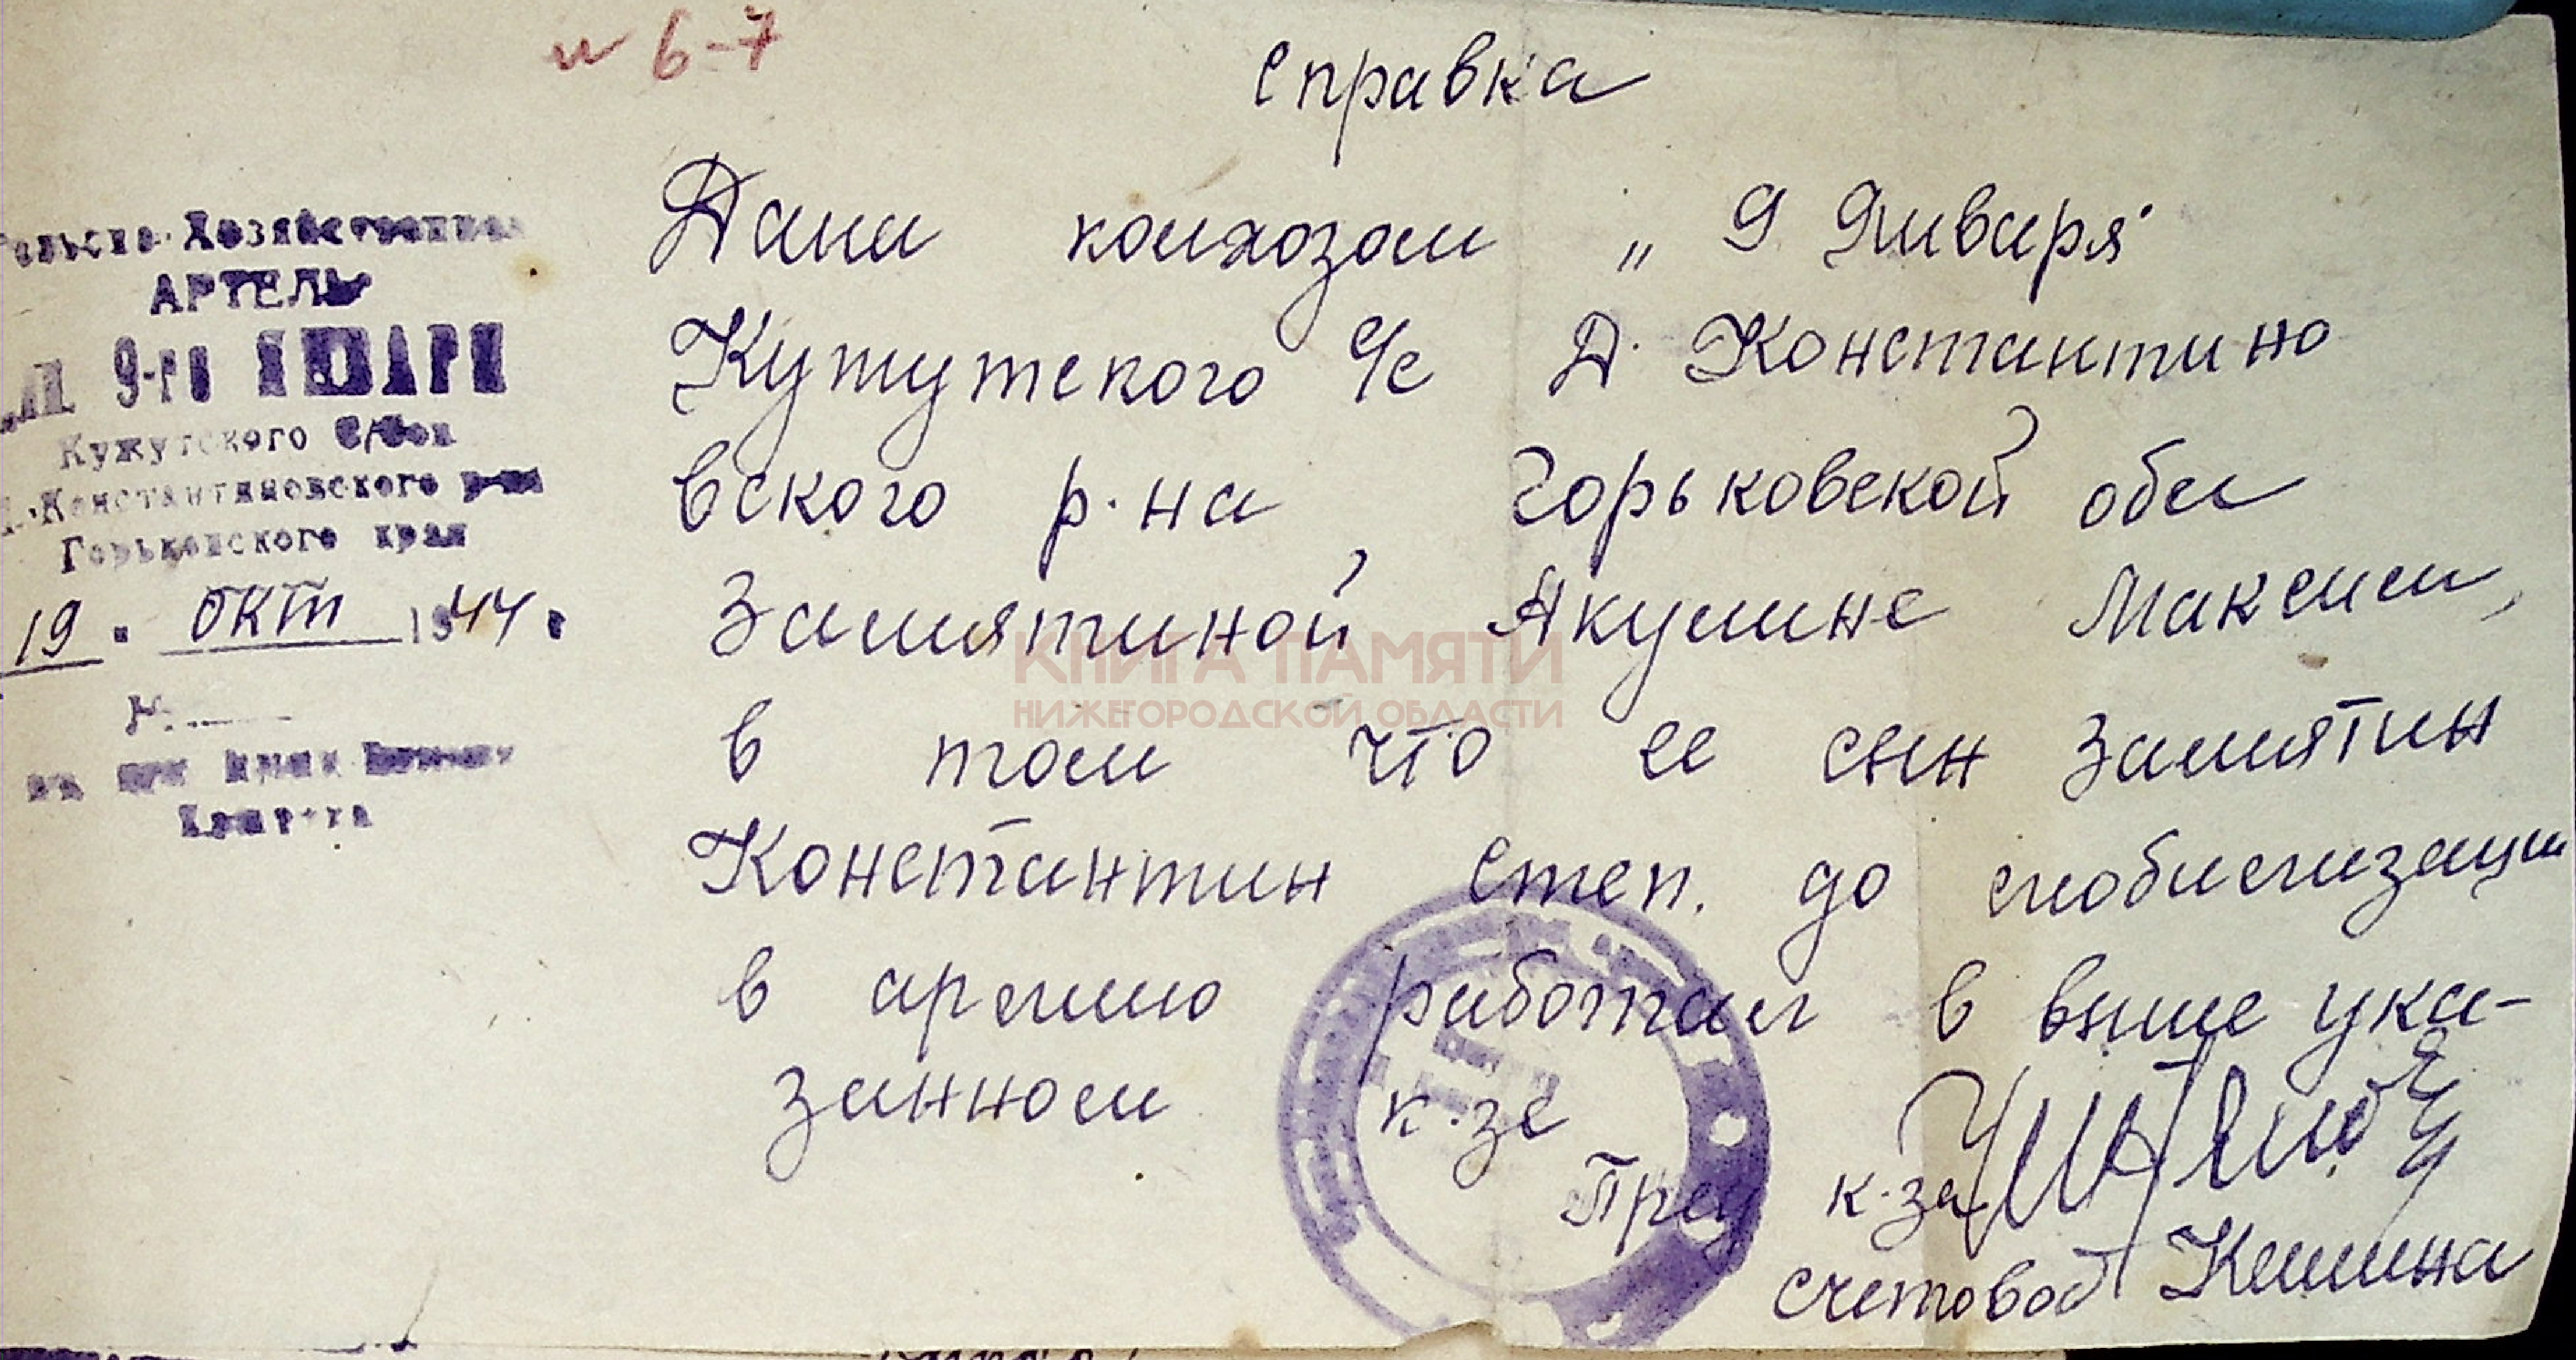 и 6-7
Справка
Сельско-Хозяйственная
АРТЕЛЬ
9-го ЯНВАРЯ
Кужутского С/Сов
Д.-Константиновского р-на
Горьковского края
19 " окт 1944 г
№
Дана колхозом „ 9 Января"
Кужутского с/с Д. Константино
вского р-на Горьковской обл
Замятиной Акулине Максим,
в том что ее сын Замятин
Константин Степ. до мобилизации
в армию работал в выше ука-
занном к-зе
Пред к-за
счетовод
КНИГА ПАМЯТИ
НИЖЕГОРОДСКОЙ ОБЛАСТИ